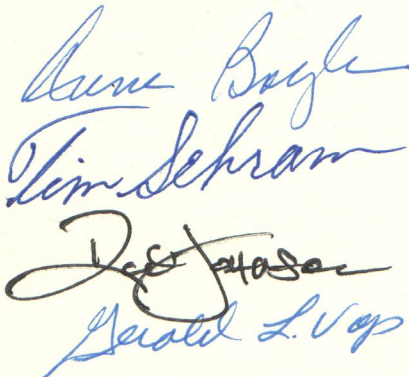 Anne Boyle
Tim Schram
Johnson
Gerald L. Vap